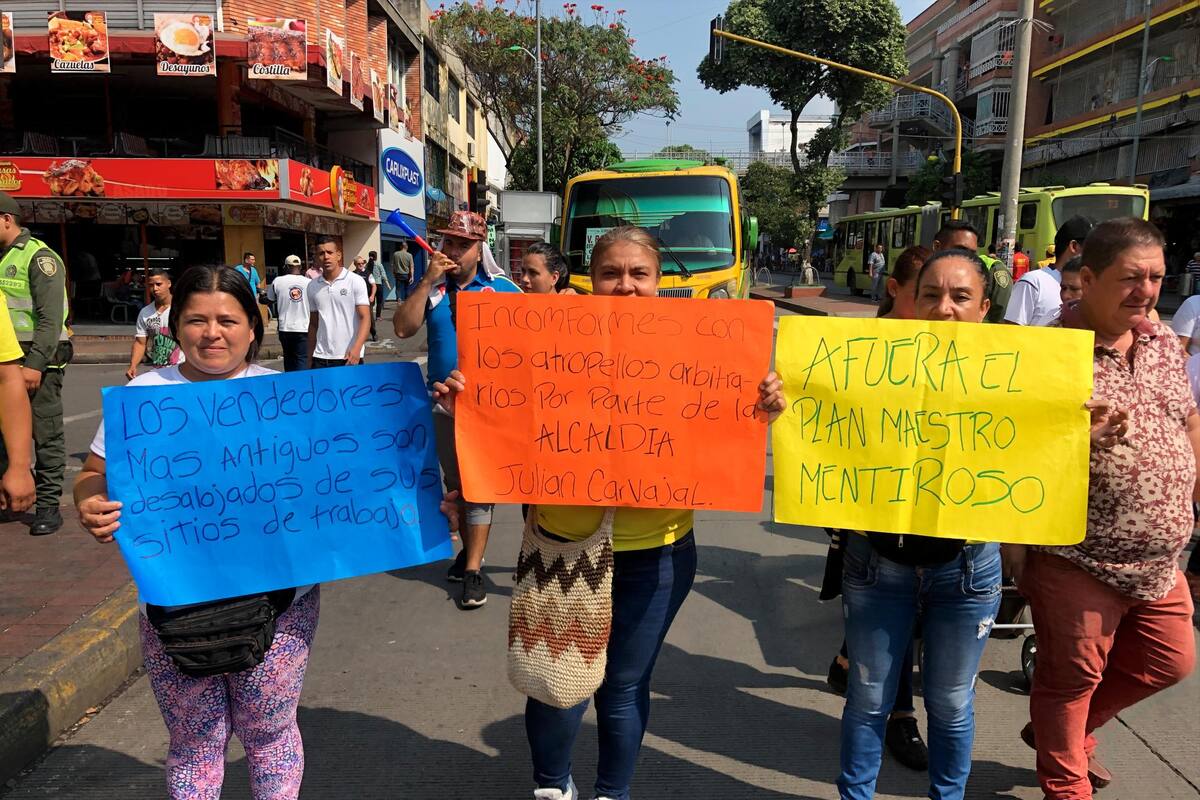 Cazuelas
Desayunos
Costilla
CARLIXPLAST
LOS Vendedores
Mas Antiguos son
desalojados de sus
sitios de trabajo.
Incomformes con
los atropellos arbitra-
rios Por Parte de la
ALCALDIA
Julian Carvajal.
AFUERA EL
PLAN MAESTRO
MENTIROSO